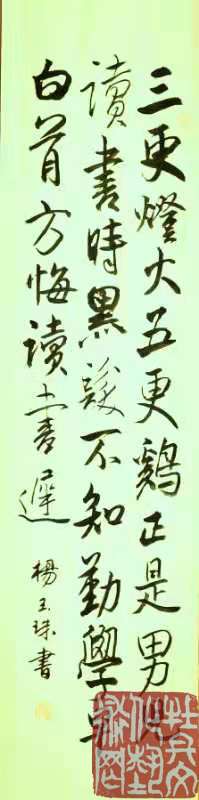 三更燈火五更鷄正是男児
讀書時黑髮不知勤學早
白首方悔讀書遲
楊玉珠書